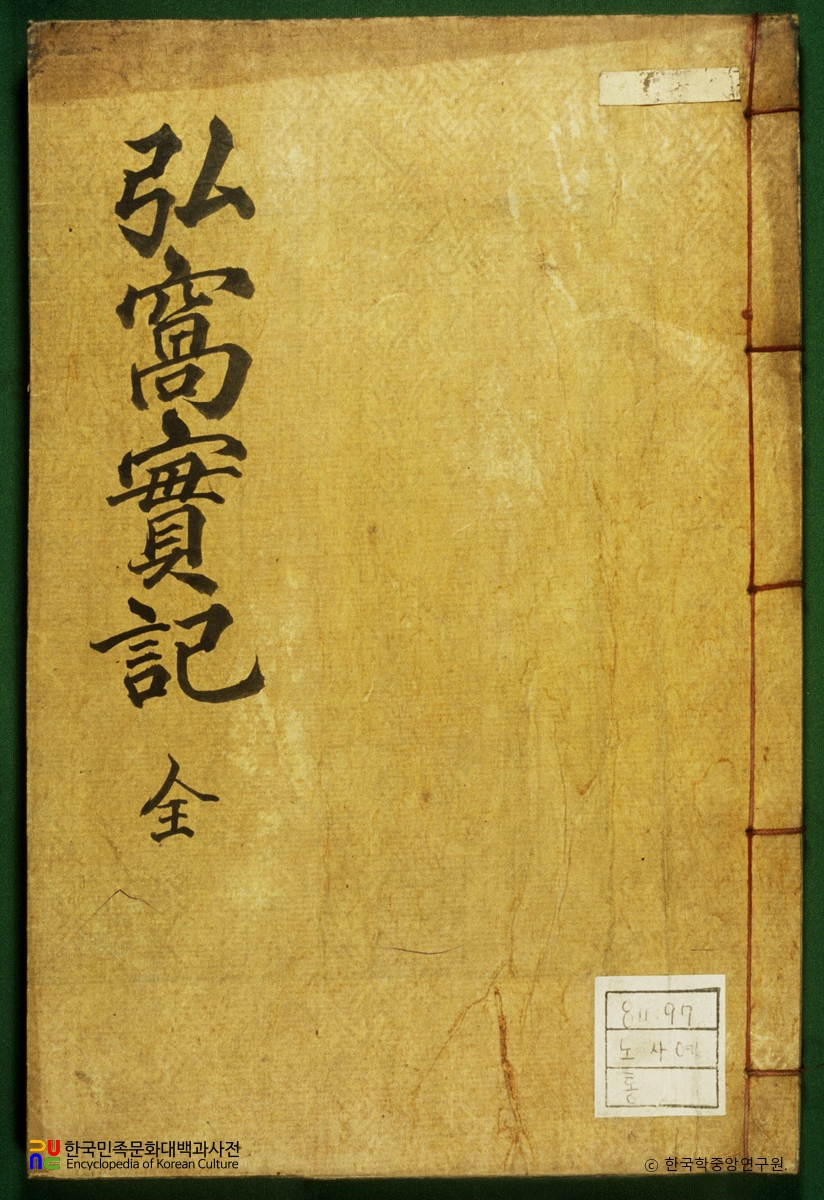 弘窩實記 全
811.97
노사예
통
한국민족문화대백과사전
Encyclopedia of Korean Culture
ⓒ 한국학중앙연구원.